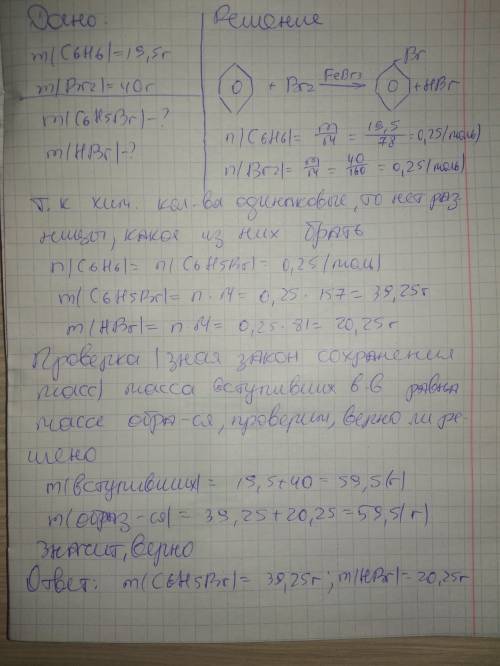 Дано:
m(C6H6)=19,5г
m(Br2)=40г
m(C6H5Br)-?
m(HBr)-?
Решение
Br
+ Br2 FeBr3 + HBr
n(C6H6)= m/M = 19,5/78 = 0,25(моль)
n(Br2)= m/M = 40/160 = 0,25(моль)
Т.к хим. кол-ва одинаковые, то нет раз-
ницы, какое из них брать
n(C6H6)= n(C6H5Br)= 0,25(моль)
m(C6H5Br)= n·M= 0,25·157= 39,25г
m(HBr)= n·M= 0,25·81= 20,25г
Проверка (зная закон сохранения
масс) масса вступивших в-в равна
массе обра-ся, проверим, верно ли ре-
шено
m(вступивших)= 19,5+40=59,5(г)
m(образ-ся)= 39,25+20,25=59,5(г)
значит, верно
Ответ: m(C6H5Br)= 39,25г; m(HBr)= 20,25г